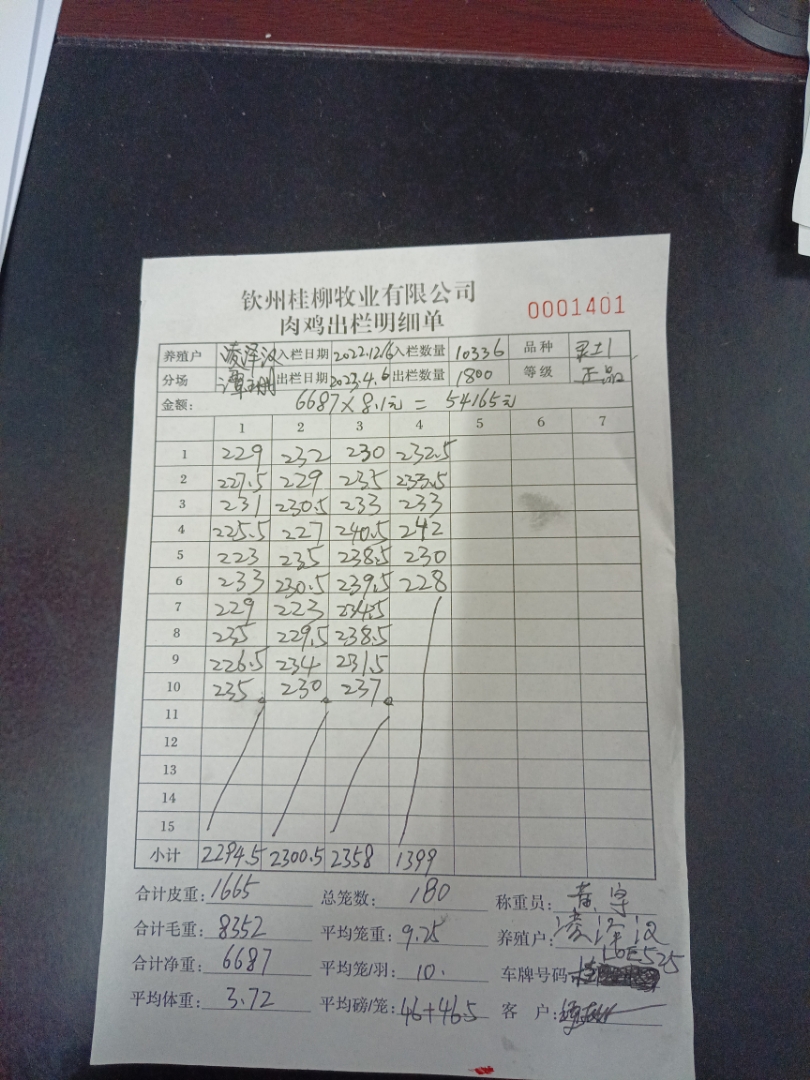 钦州桂柳牧业有限公司
肉鸡出栏明细单
0001401
养殖户 凌泽汉 入栏日期 2022.12/6 入栏数量 10336 品种 灵土1
分场 出栏日期 2023.4.6 出栏数量 1800 等级 正品
金额: 6687×8.1元=54165元
1 2 3 4 5 6 7
1 229 232 230 232.5
2 227.5 229 235 233.5
3 231 230.5 233 233
4 225.5 227 240.5 242
5 223 235 238.5 230
6 233 230.5 239.5 228
7 229 223 234.5
8 235 229.5 238.5
9 226.5 234 231.5
10 235 230 237
11
12
13
14
15
小计 2294.5 2300.5 2358 1399
合计皮重: 1665 总笼数: 180 称重员:
合计毛重: 8352 平均笼重: 9.25 养殖户: 凌泽汉
合计净重: 6687 平均笼/羽: 10. 车牌号码 L6E525
平均体重: 3.72 平均磅/笼: 46+46.5 客 户: